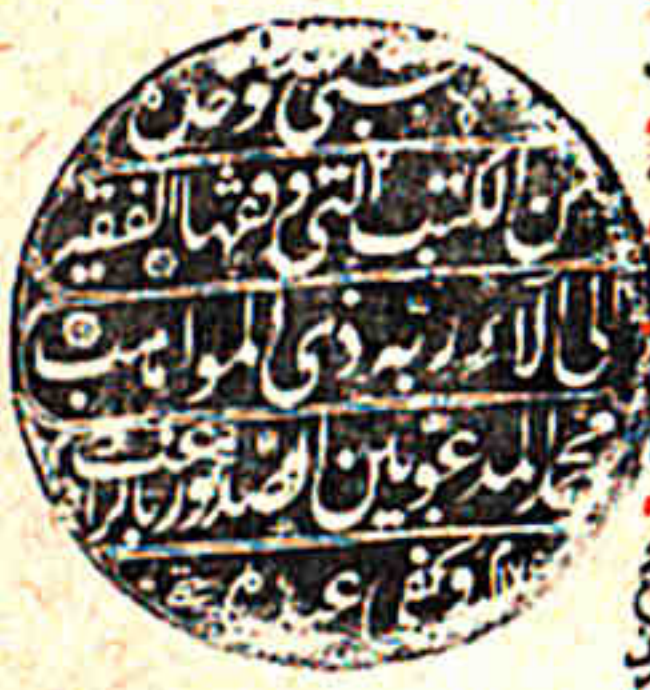 حسبي وحده
من الكتب التي وقفها الفقير
الى آلاء ربه ذي المواهب
محمد المدعو بين الصدور بالراغب
وكفى عبده